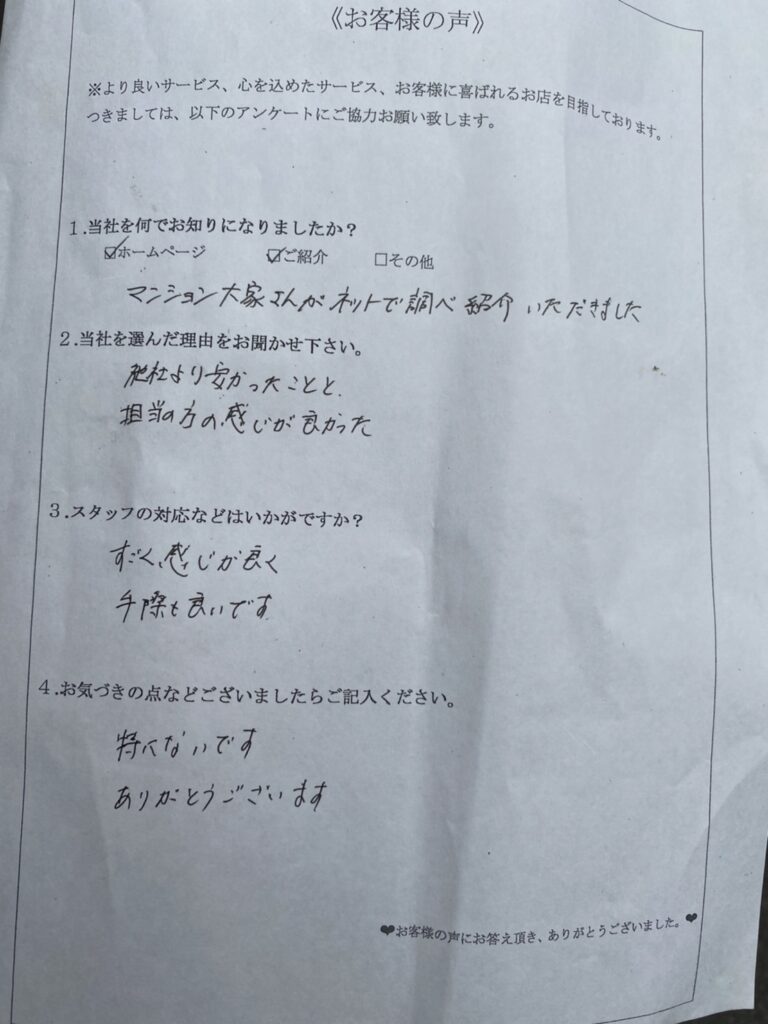 《お客様の声》
※より良いサービス、心を込めたサービス、お客様に喜ばれるお店を目指しております。
つきましては、以下のアンケートにご協力お願い致します。
1.当社を何でお知りになりましたか？
☑ホームページ ☑ご紹介 □その他
マンション大家さんがネットで調べ紹介いただきました
2.当社を選んだ理由をお聞かせ下さい。
他社より安かったことと、
担当の方の感じが良かった
3.スタッフの対応などはいかがですか？
すごく感じが良く
手際も良いです
4.お気づきの点などございましたらご記入ください。
特にないです
ありがとうございます
❤お客様の声にお答え頂き、ありがとうございました。❤